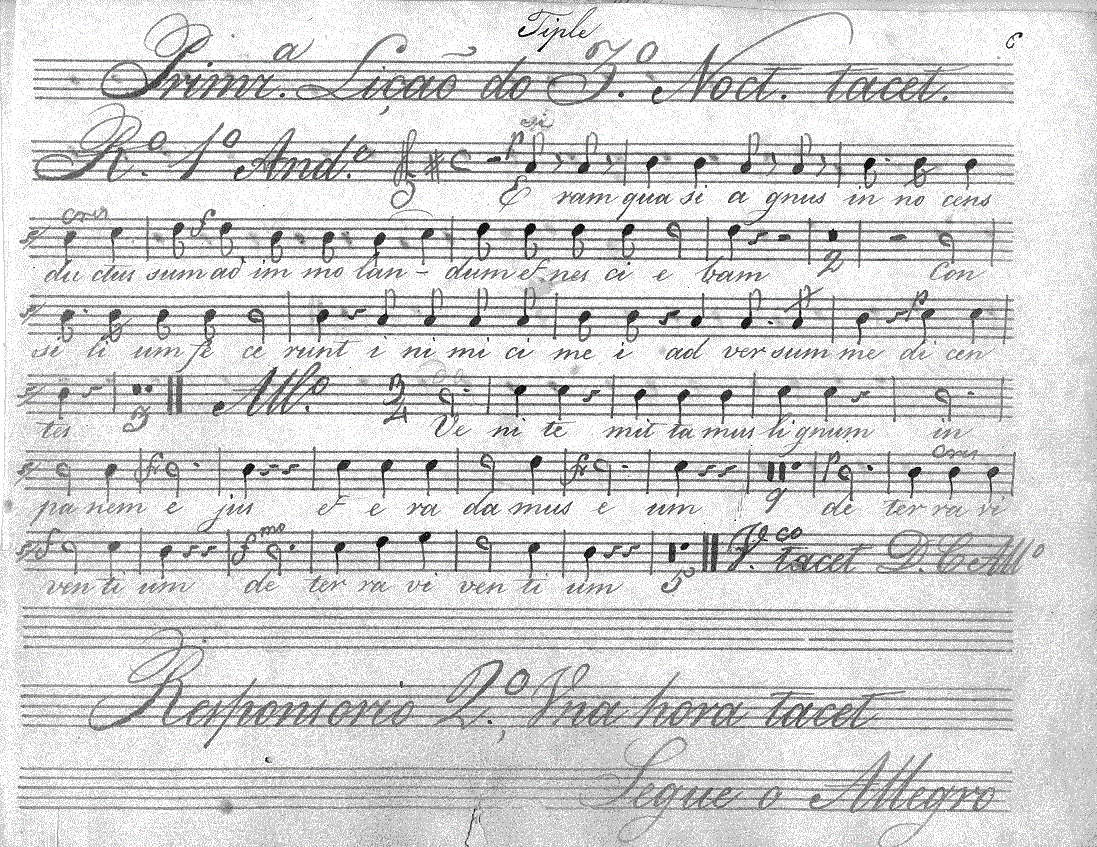 Tiple
6
Primr.ª Lição do 3.º Noct. tacet.
R.º 1º And.e
si
p
E ram qua si a gnus in no cens
cres f
du ctus sum ad im mo lan - dum et nes ci e bam 2 Con
p
si li um fe ce runt i ni mi ci me i ad ver sum me di cen
All.º 3/4
tes 3 Ve ni te mit ta mus li gnum in
p cres
pa nem e jus et e ra da mus e um 9 de ter ra vi
f f mo V. co tacet D.C. Allº
ven ti um de ter ra vi ven ti um 5
Responsorio 2.º Vna hora tacet
Segue o Allegro